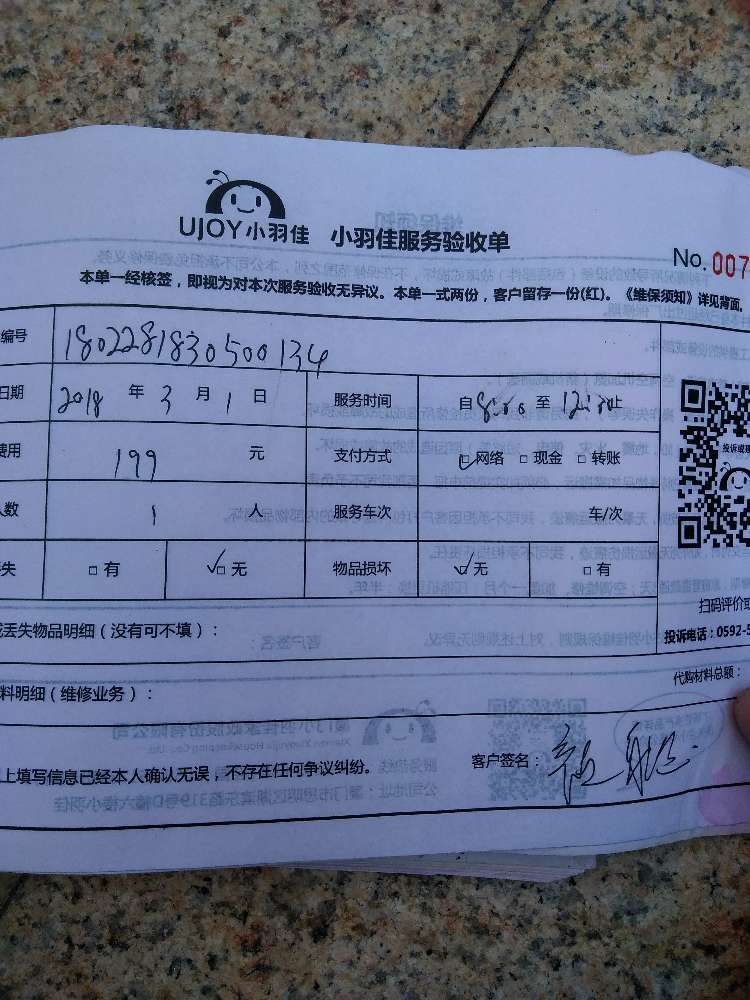 UJOY小羽佳 小羽佳服务验收单
No. 007
本单一经核签，即视为对本次服务验收无异议。本单一式两份，客户留存一份(红)。《维保须知》详见背面。
编号 1802281830500134
日期 2018 年 3 月 1 日 服务时间 自 8:00 至 12:00 止
费用 199 元 支付方式 ☑网络 □现金 □转账
人数 1 人 服务车次 车/次
失 □有 ☑无 物品损坏 ☑无 □有
投诉或
扫码评价
或丢失物品明细（没有可不填）：
投诉电话：0592-5
料明细（维修业务）：
代购材料总额：
上填写信息已经本人确认无误，不存在任何争议纠纷。 客户签名：